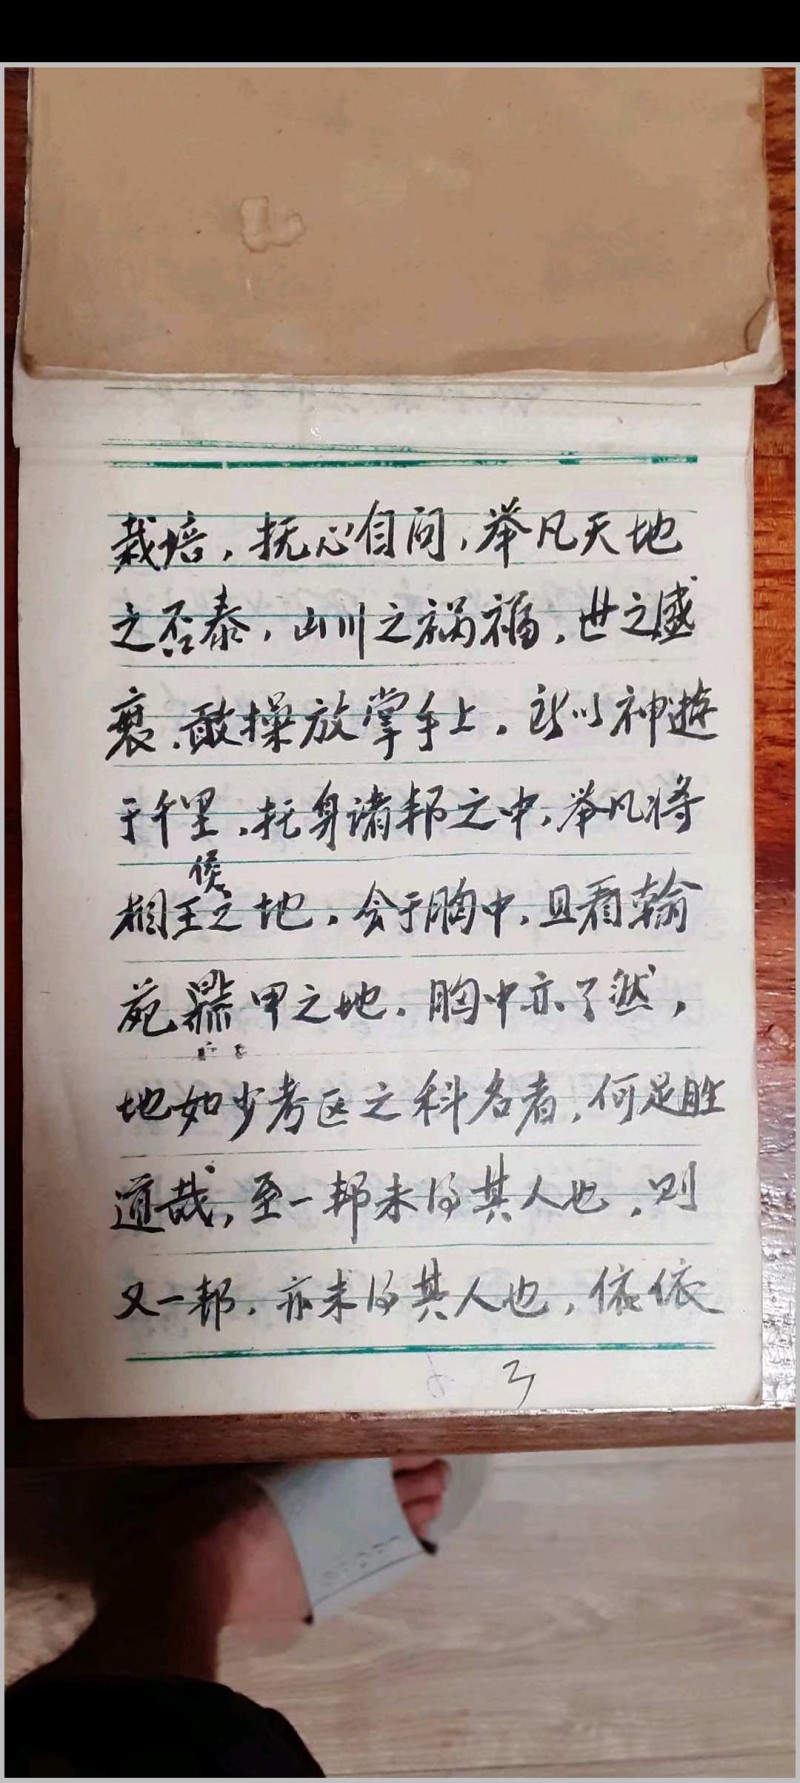 栽培，抚心自问，举凡天地
之否泰，山川之祸福，世之盛
衰，敢操放掌手上，所以神遊
于千里，托身诸邦之中，举凡将
侯
相王之地，会于胸中，且看翰
苑鼎甲之地，胸中亦了然，
地如少考区之科名者，何足胜
道哉，至一邦未得其人也，则
又一邦，亦未得其人也，依依
3